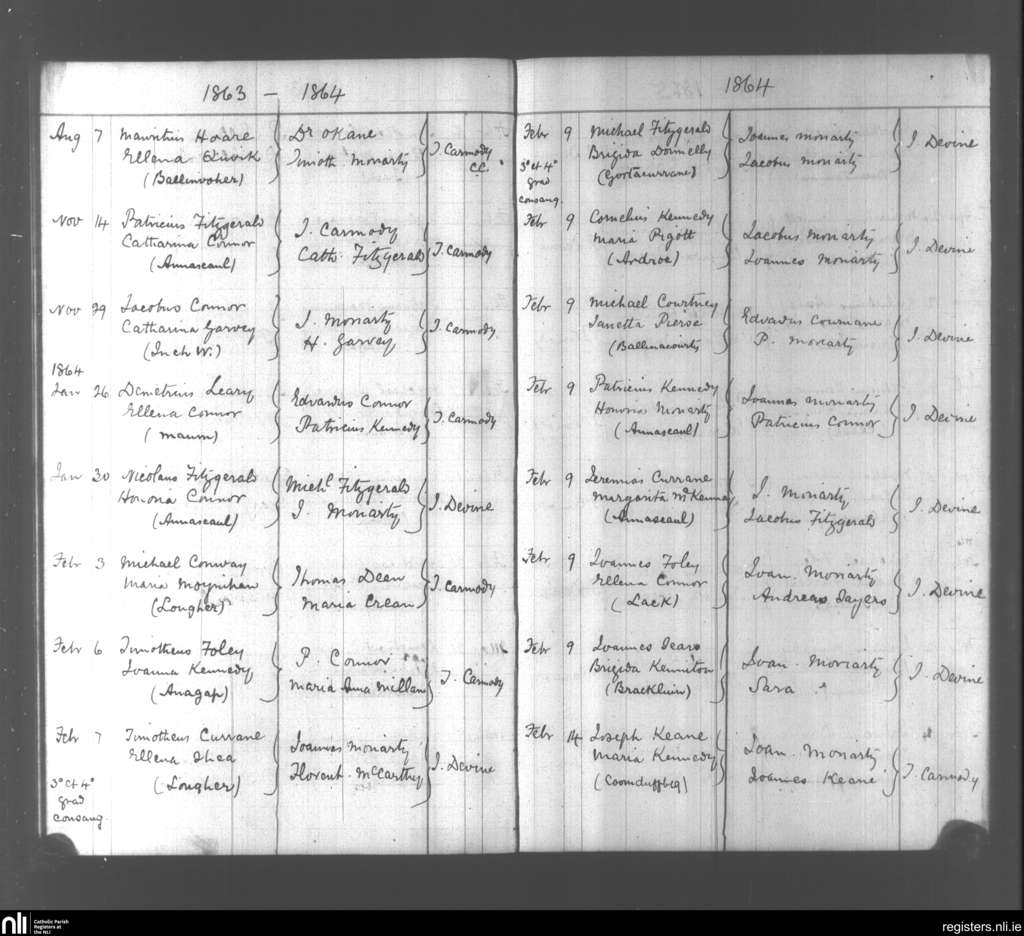 1863 – 1864
Aug 7 Mauritius Hoare
Ellena Quirk
(Ballinvoher)
Dr OKane
Timoth. Moriarty
T. Carmody
C.C.
Nov 14 Patricius Fitzgerald
Catharina Connor
(Annascaul)
T. Carmody
Cath. Fitzgerald
T. Carmody
Nov 29 Jacobus Connor
Catharina Garvey
(Inch W.)
J. Moriarty
H. Garvey
T. Carmody
1864
Jan 26 Demetrius Leary
Ellena Connor
(Maum)
Edvardus Connor
Patricius Kennedy
T. Carmody
Jan 30 Nicolaus Fitzgerald
Honoria Connor
(Annascaul)
Michl Fitzgerald
J. Moriarty
J. Devine
Febr 3 Michael Conway
Maria Moynihan
(Lougher)
Thomas Dean
Maria Crean
T. Carmody
Febr 6 Timotheus Foley
Joanna Kennedy
(Anagap)
P. Connor
Maria Anna Millan
T. Carmody
Febr 7 Timotheus Currane
Ellena Shea
(Lougher)
3° et 4°
grad
consang.
Joannes Moriarty
Florent. McCarthy
J. Devine
1864
Febr 9 Michael Fitzgerald
Brigida Donnelly
(Gortacurrane)
3° et 4°
grad
consang.
Joannes Moriarty
Jacobus Moriarty
J. Devine
Febr 9 Cornelius Kennedy
Maria Pigott
(Androe)
Jacobus Moriarty
Joannes Moriarty
J. Devine
Febr 9 Michael Courtney
Janetta Pierse
(Ballinacourty
Edvardus Coumane
P. Moriarty
J. Devine
Febr 9 Patricius Kennedy
Honoria Moriarty
(Annascaul)
Joannes Moriarty
Patricius Connor
J. Devine
Febr 9 Jeremias Currane
Margarita McKenna
(Annascaul)
J. Moriarty
Jacobus Fitzgerald
J. Devine
Febr 9 Joannes Foley
Ellena Connor
(Lack)
Joan. Moriarty
Andreas Sayers
J. Devine
Febr 9 Joannes Sears
Brigida Kenniton
(Brackluin)
Joan. Moriarty
Sara "
J. Devine
Febr 14 Joseph Keane
Maria Kennedy
(Coomduffbeg)
Joan. Moriarty
Joannes Keane
T. Carmody
nli Catholic Parish
Registers at
the NLI
registers.nli.ie